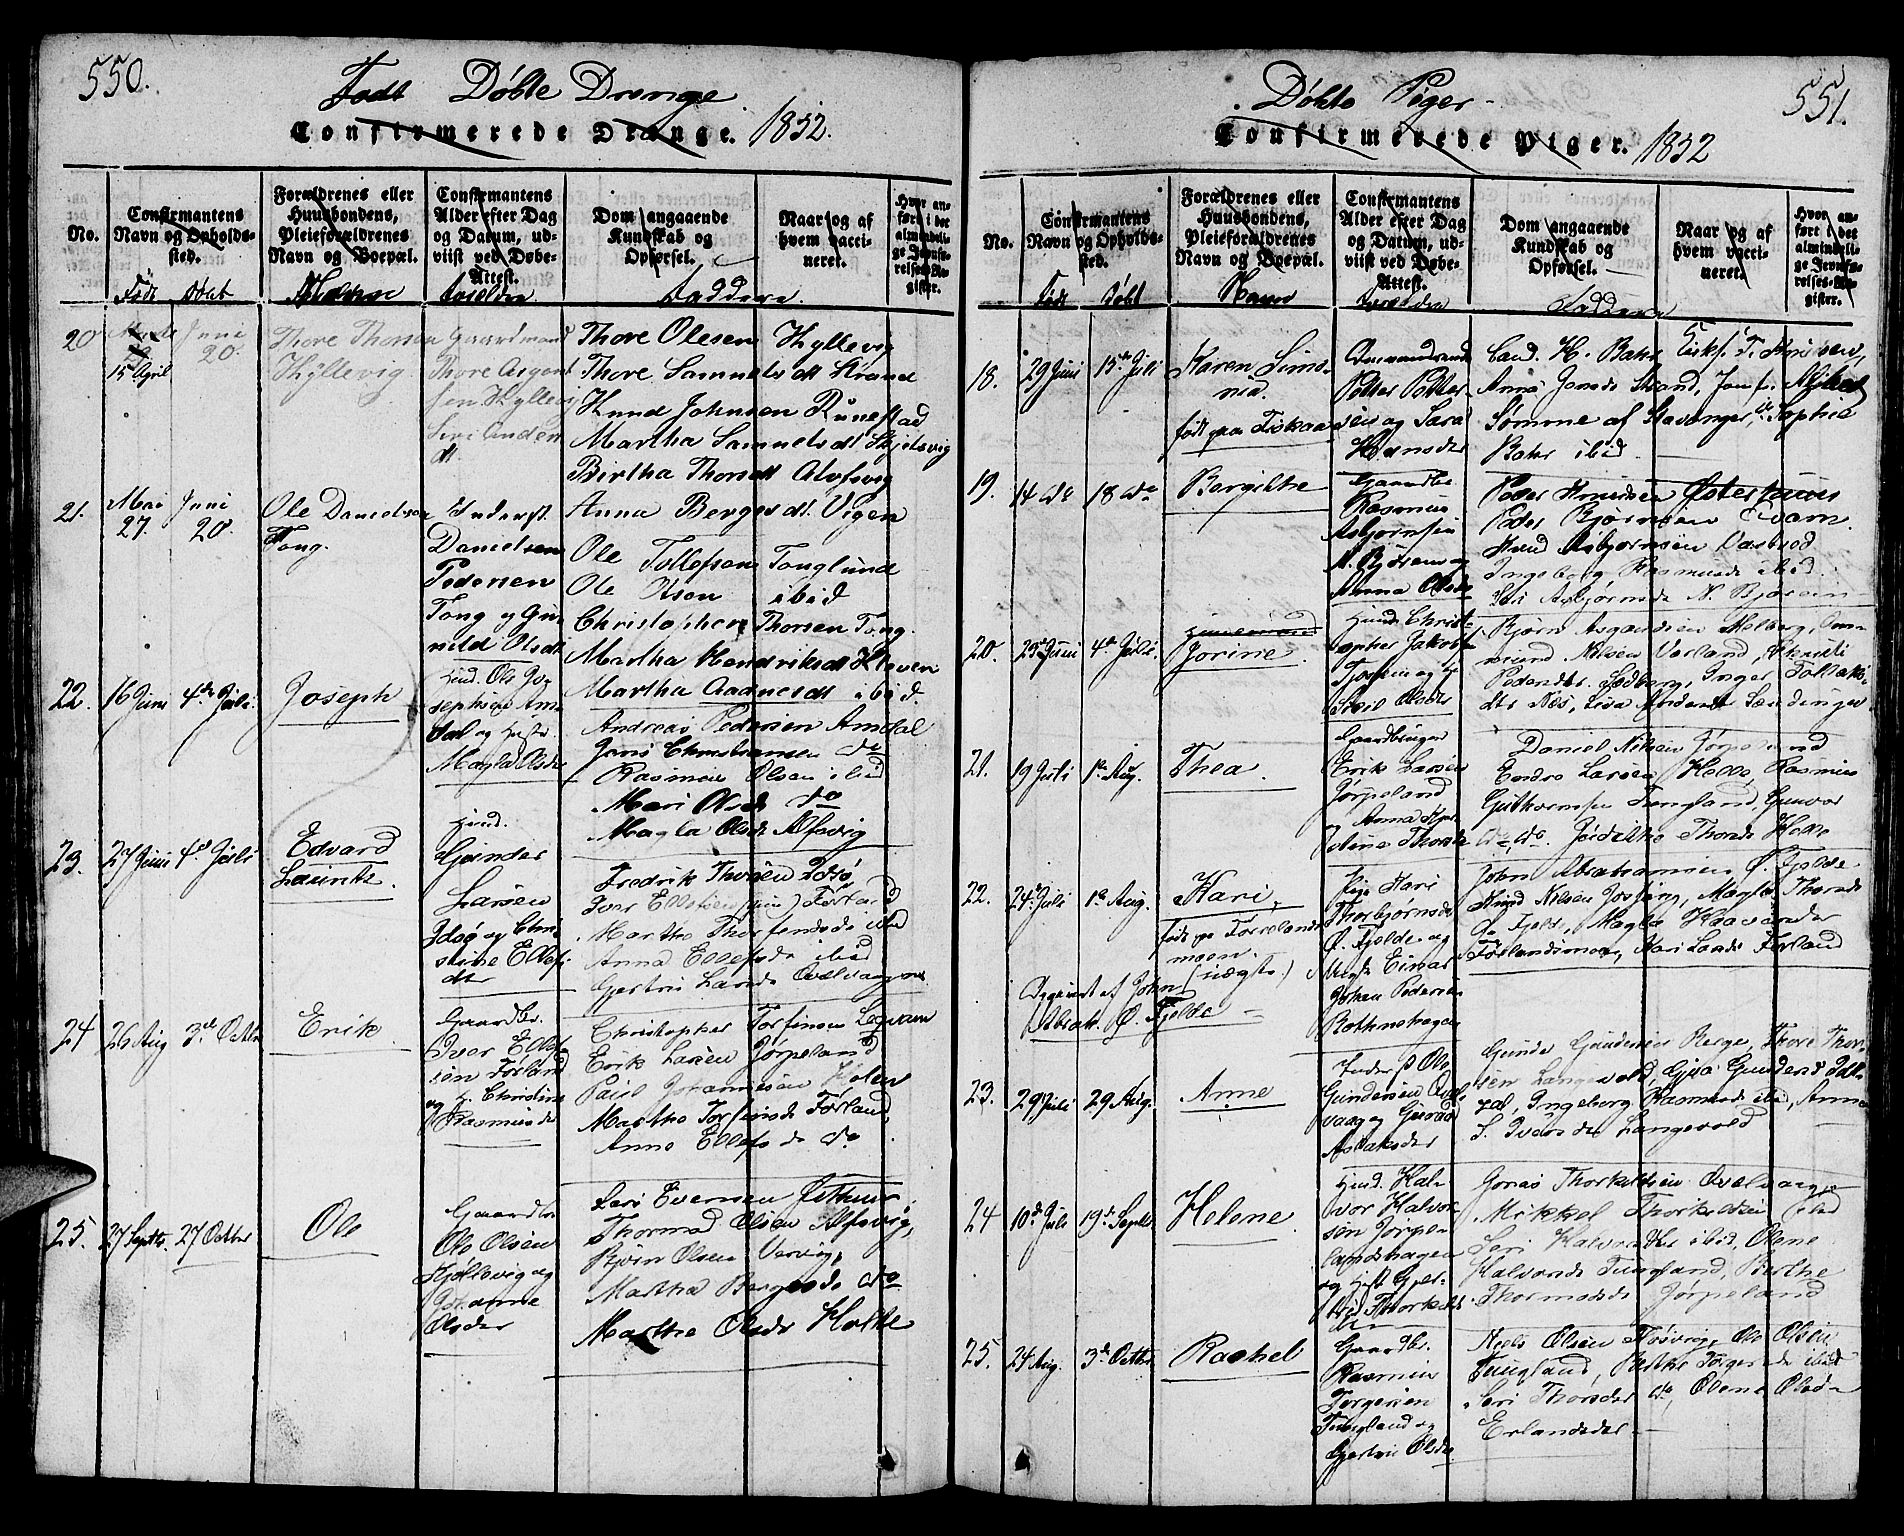 550.
Født Døbte Drenge
Confirmerede Drenge. 1852.
No.
Confirmantens Navn og Opholdssted.
Forældrenes eller Huusbondens, Pleieforældrenes Navn og Boepæl.
Confirmantens Alder efter Dag og Datum, udviist ved Døbe-Attest.
Dom angaaende Kundskab og Opførsel.
Naar og af hvem vaccineret.
Hvor anført i det almindelige Jevnførelses-Register.
Født Døbt Forældre Faddere.
20 15 April Juni 20.
Thore Thorsen
Hyllevig
Gaardmand
Thore Asgaut
sen Hyllevig
Siri Anders
dt
Thore Olesen Hyllevig
Thore Samuelsdt Strand
Knud Johnsen Runestad
Martha Samuelsdt Skjelsvig
Birtha Thorsdt Alvsvig
21. Mai 27. Juni 20.
Ole Danielsen
Tong.
Inderst.
Danielsen
Pedersen
Tong og Gun
nild Olsdt
Anna Bergesdt Vigen
Ole Tollefsen Tonglund
Ole Olsen ibid
Christopher Thorsen Tong.
Martha Hendriksdt Kleven
Martha Aadnesdt ibid
22. 16 Juni 4de Juli.
Joseph
Huud. Ole Jo-
sephsen Am-
dal og Huste
Magla Olsdr
Andreas Pedersen Amdal
Jens Christiansen do
Rasmus Olsen ibid
Mari Olsdr do
Magla Olsdr Alfsvig
23. 27 Juni 4de Juli
Edvard
Lauritz.
Huud.
Gunder
Larsen
Idsø og Chri
stine Ellefs
dtr
Fredrik Thorsen Idsø
Iver Ellefsen (sen) Førland
Martha Thorfinsdr ibid
Anna Ellefsdr ibid
Gjertru Larsdr Qvalvaagen
24 26 Aug 3de Octbr
Erik
Gaardbr.
Iver Ellef-
sen Førland
og H. Christine
Rasmusdr
Christopher Torfinsen Legvam
Erik Larsen Jørpeland
Paul Johannesen Holen
Martha Torfinsdr Førland,
Anna Ellefsdr do
25. 27 Septbr. 27 Octbr
Ole
Gaardbr
Ole Olsen
Hyllevig og
Johanne
Olsdtr
Lars Evensen Østhuus
Thormod Olsen Alfsvig,
Bjørn Olsen Vervig,
Martha Bergesdr do
Marthe Olsdr Holte
551.
Døbte Piger
Confirmerede Piger. 1852
No.
Confirmantens Navn og Opholdssted.
Forældrenes eller Huusbondens, Pleieforældrenes Navn og Boepæl.
Confirmantens Alder efter Dag og Datum, udviist ved Døbe-Attest.
Dom angaaende Kundskab og Opførsel.
Naar og af hvem vaccineret.
Hvor anført i det almindelige Jevnførelses-Register.
Født Døbt Navn Forældre Faddere
18. 29 Juni 15de Juli
Karen
født paa Fiskaa
Petter Petter-
sen og Sara
Hansdtr
Cand. H. Bahr,
Anna Jensdr Strand,
Sømme af Stavanger, Sophie
Bahr ibid
19. 14 do 18 do
Bergithe
Gaardbr
Rasmus
Asbjørnsen
N. Bjørein og
Anna Olsdr
Peder Knudsen Østerhuus
Peder Bjørnsen Qvam.
Knud Asbjørnsen Vasbod
Ingeborg Rasmusdr ibid
Siri Asbjørnsdr N. Bjørein
20. 25 Juni 4de Juli.
Jorine.
Huusm. Christ-
opher Jakobs
Sivil Olsdtr
Bjørn Asgautsen Melberg,
mund Nilsen Varland,
Pedersdtr Sedberg, Inger Follaks-
dtr Næs, Lisa Andersdt
21. 19 Juli 1te Aug.
Thea.
Gaardbruger
Erik Larsen
Jørpeland
og Anna Kjer-
stine Thorsdr
Daniel Nilsen Jørpeland
Endre Larsen Helle, Rasmus
Guthormsen Tungland, Gunvor
do, do. Thorsdr Helle
22. 24 Juli 1te Aug.
Kari,
født paa Førrelands
moen.
(uægte)
Pige Kari
Thorbjørnsdr
Ø. Fjelde og
Johan Pedersen
Bothnehagen
Angivet af John
Abrah. Ø. Fjelde
John Abrahamsen Ø. Fjelde
Knud Nilsen Jøssang, Magla Thorsdr
Ø. Fjelde, Magla
Førlandsmoen, Kari Larsdr Førland
23. 29 Juli 29 Aug.
Anne
Inderst Ole
Gundersen Qval-
vaag og Gurid
Aslaksdtr
Gunder Gundersen Berge, Thore Thor-
sen Langevold, Gjøa Gundersdr Idse-
dal, Ingeborg Rasmusdr ibid, Anna
S. Iversdr Langevold
24 10de Juli 19de Septbr.
Helene
Huud. Hal-
vor Halvor-
sen Jørpe-
landshagen
og Hust Gjer-
tru Thorkelds
dtr
Jonas Thorkeldsen Qvalvaag
Mikkel Thorkeldsen ibid
Siri Halvorsdtr ibid, Olene
Halvorsdr Tungland, Berthe
Thormodsdr Jørpeland
25. 24 Aug. 3de Octbr.
Rachel
Gaardbr.
Rasmus
Torgersen
Tungland og
Gjertru Olsdr
Niels Olsen Fløsvig, Ole Olsen
Tungland, Berthe Torgersdr ibid
Siri Thorsdtr do, Olene Olsd-
Erlandsdal